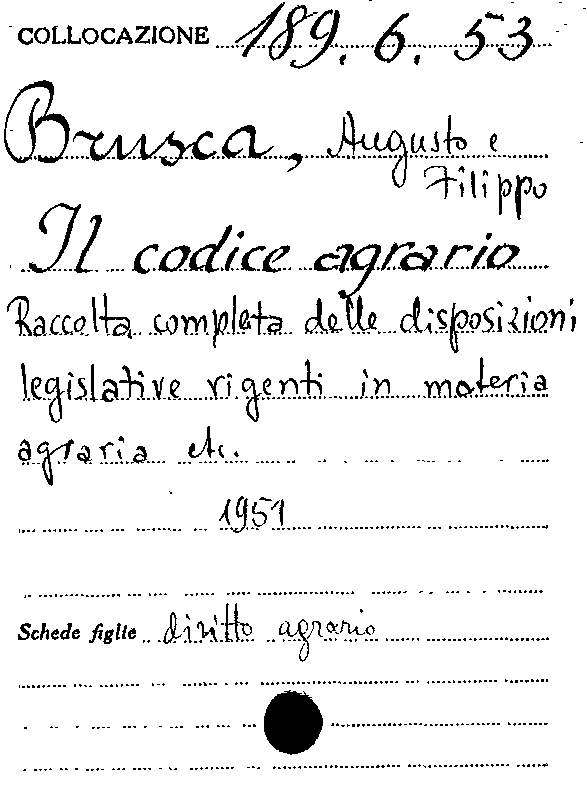 COLLOCAZIONE 189. 6. 53
Brusca, Augusto e
Filippo
Il codice agrario
Raccolta completa delle disposizioni
legislative vigenti in materia
agraria etc.
1951
Schede figlie diritto agrario